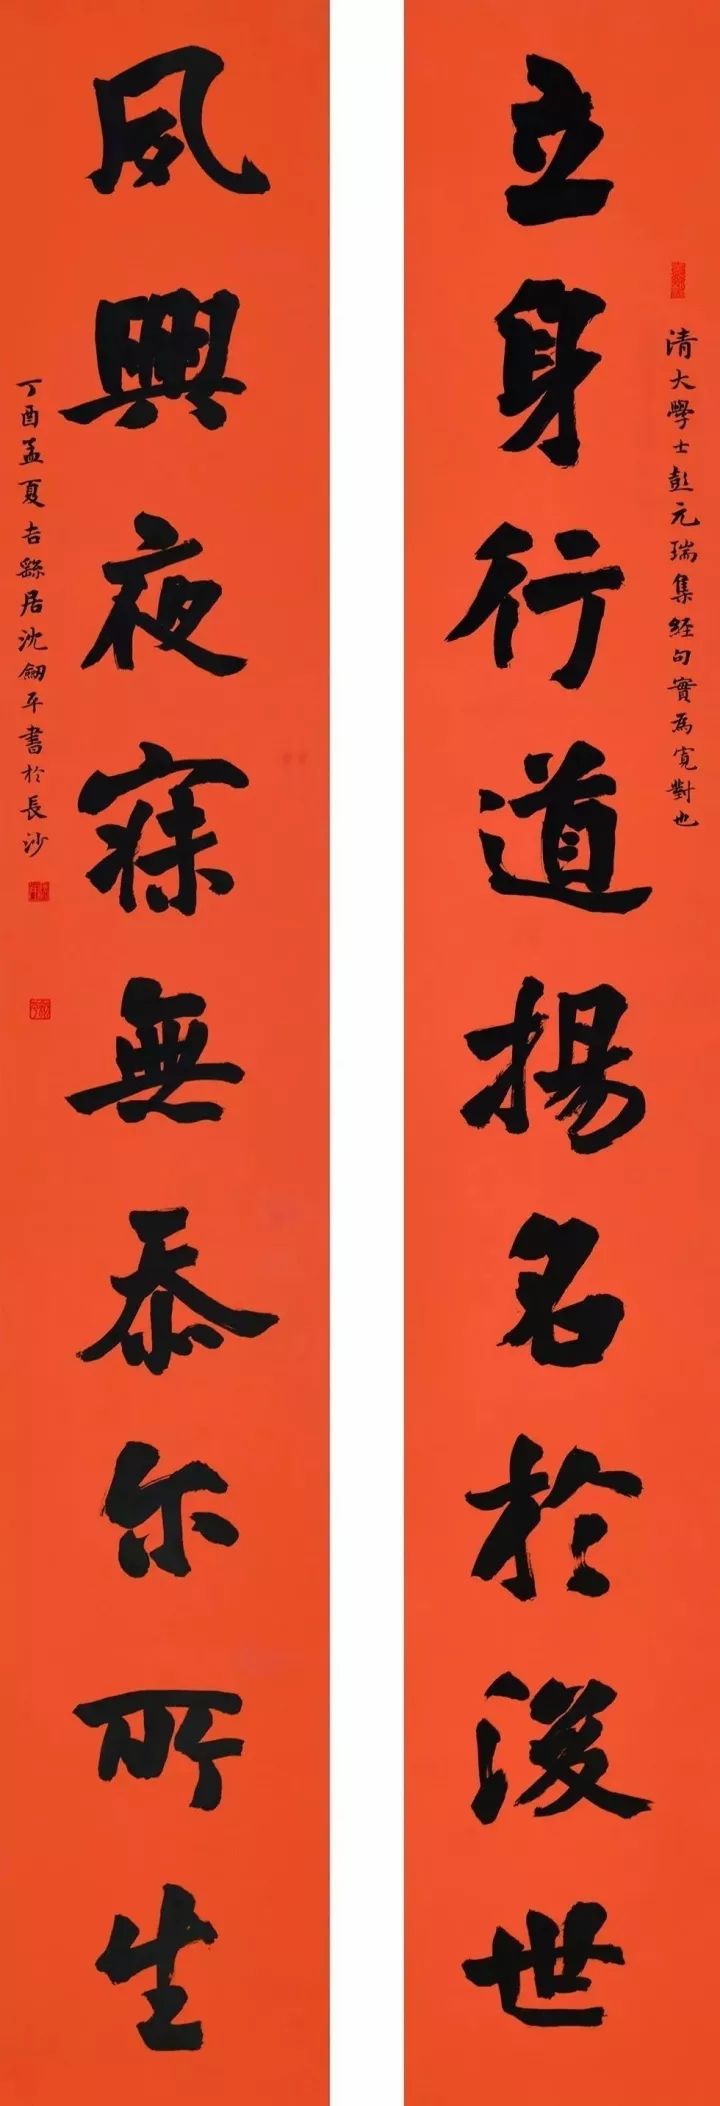 清大學士彭元瑞集經句實為寬對也
立身行道揚名於後世
夙興夜寐無忝尔所生
丁酉孟夏居沈劒平書於長沙